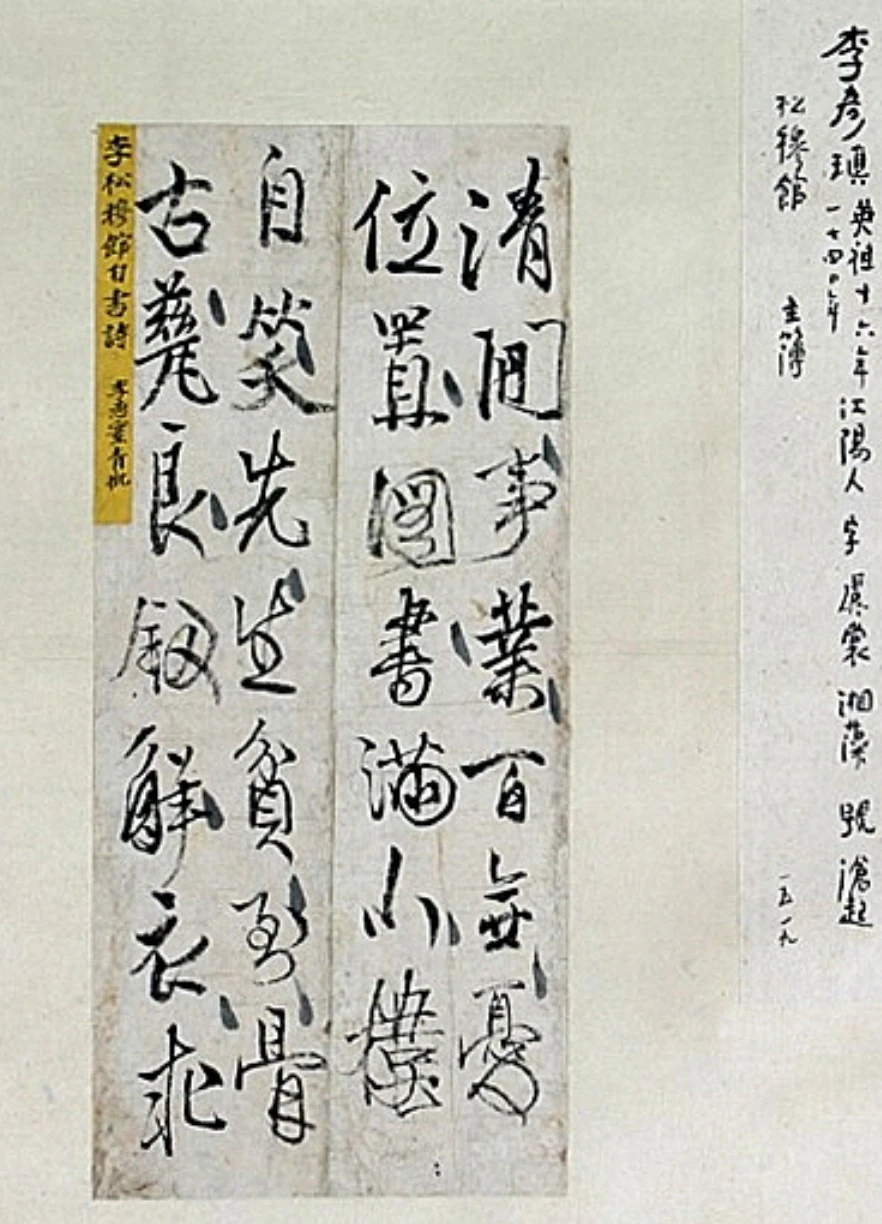 李彦瑱 英祖十六年 江陽人 字 虞裳 湘藻 號 滄起
一七四〇年
松穆館 主簿
一五一九
清閒事業百無憂
位置圖書滿小樓
自笑先生貧到骨
古甆良釰解衣求
李松穆館自書詩 李惠寰青批